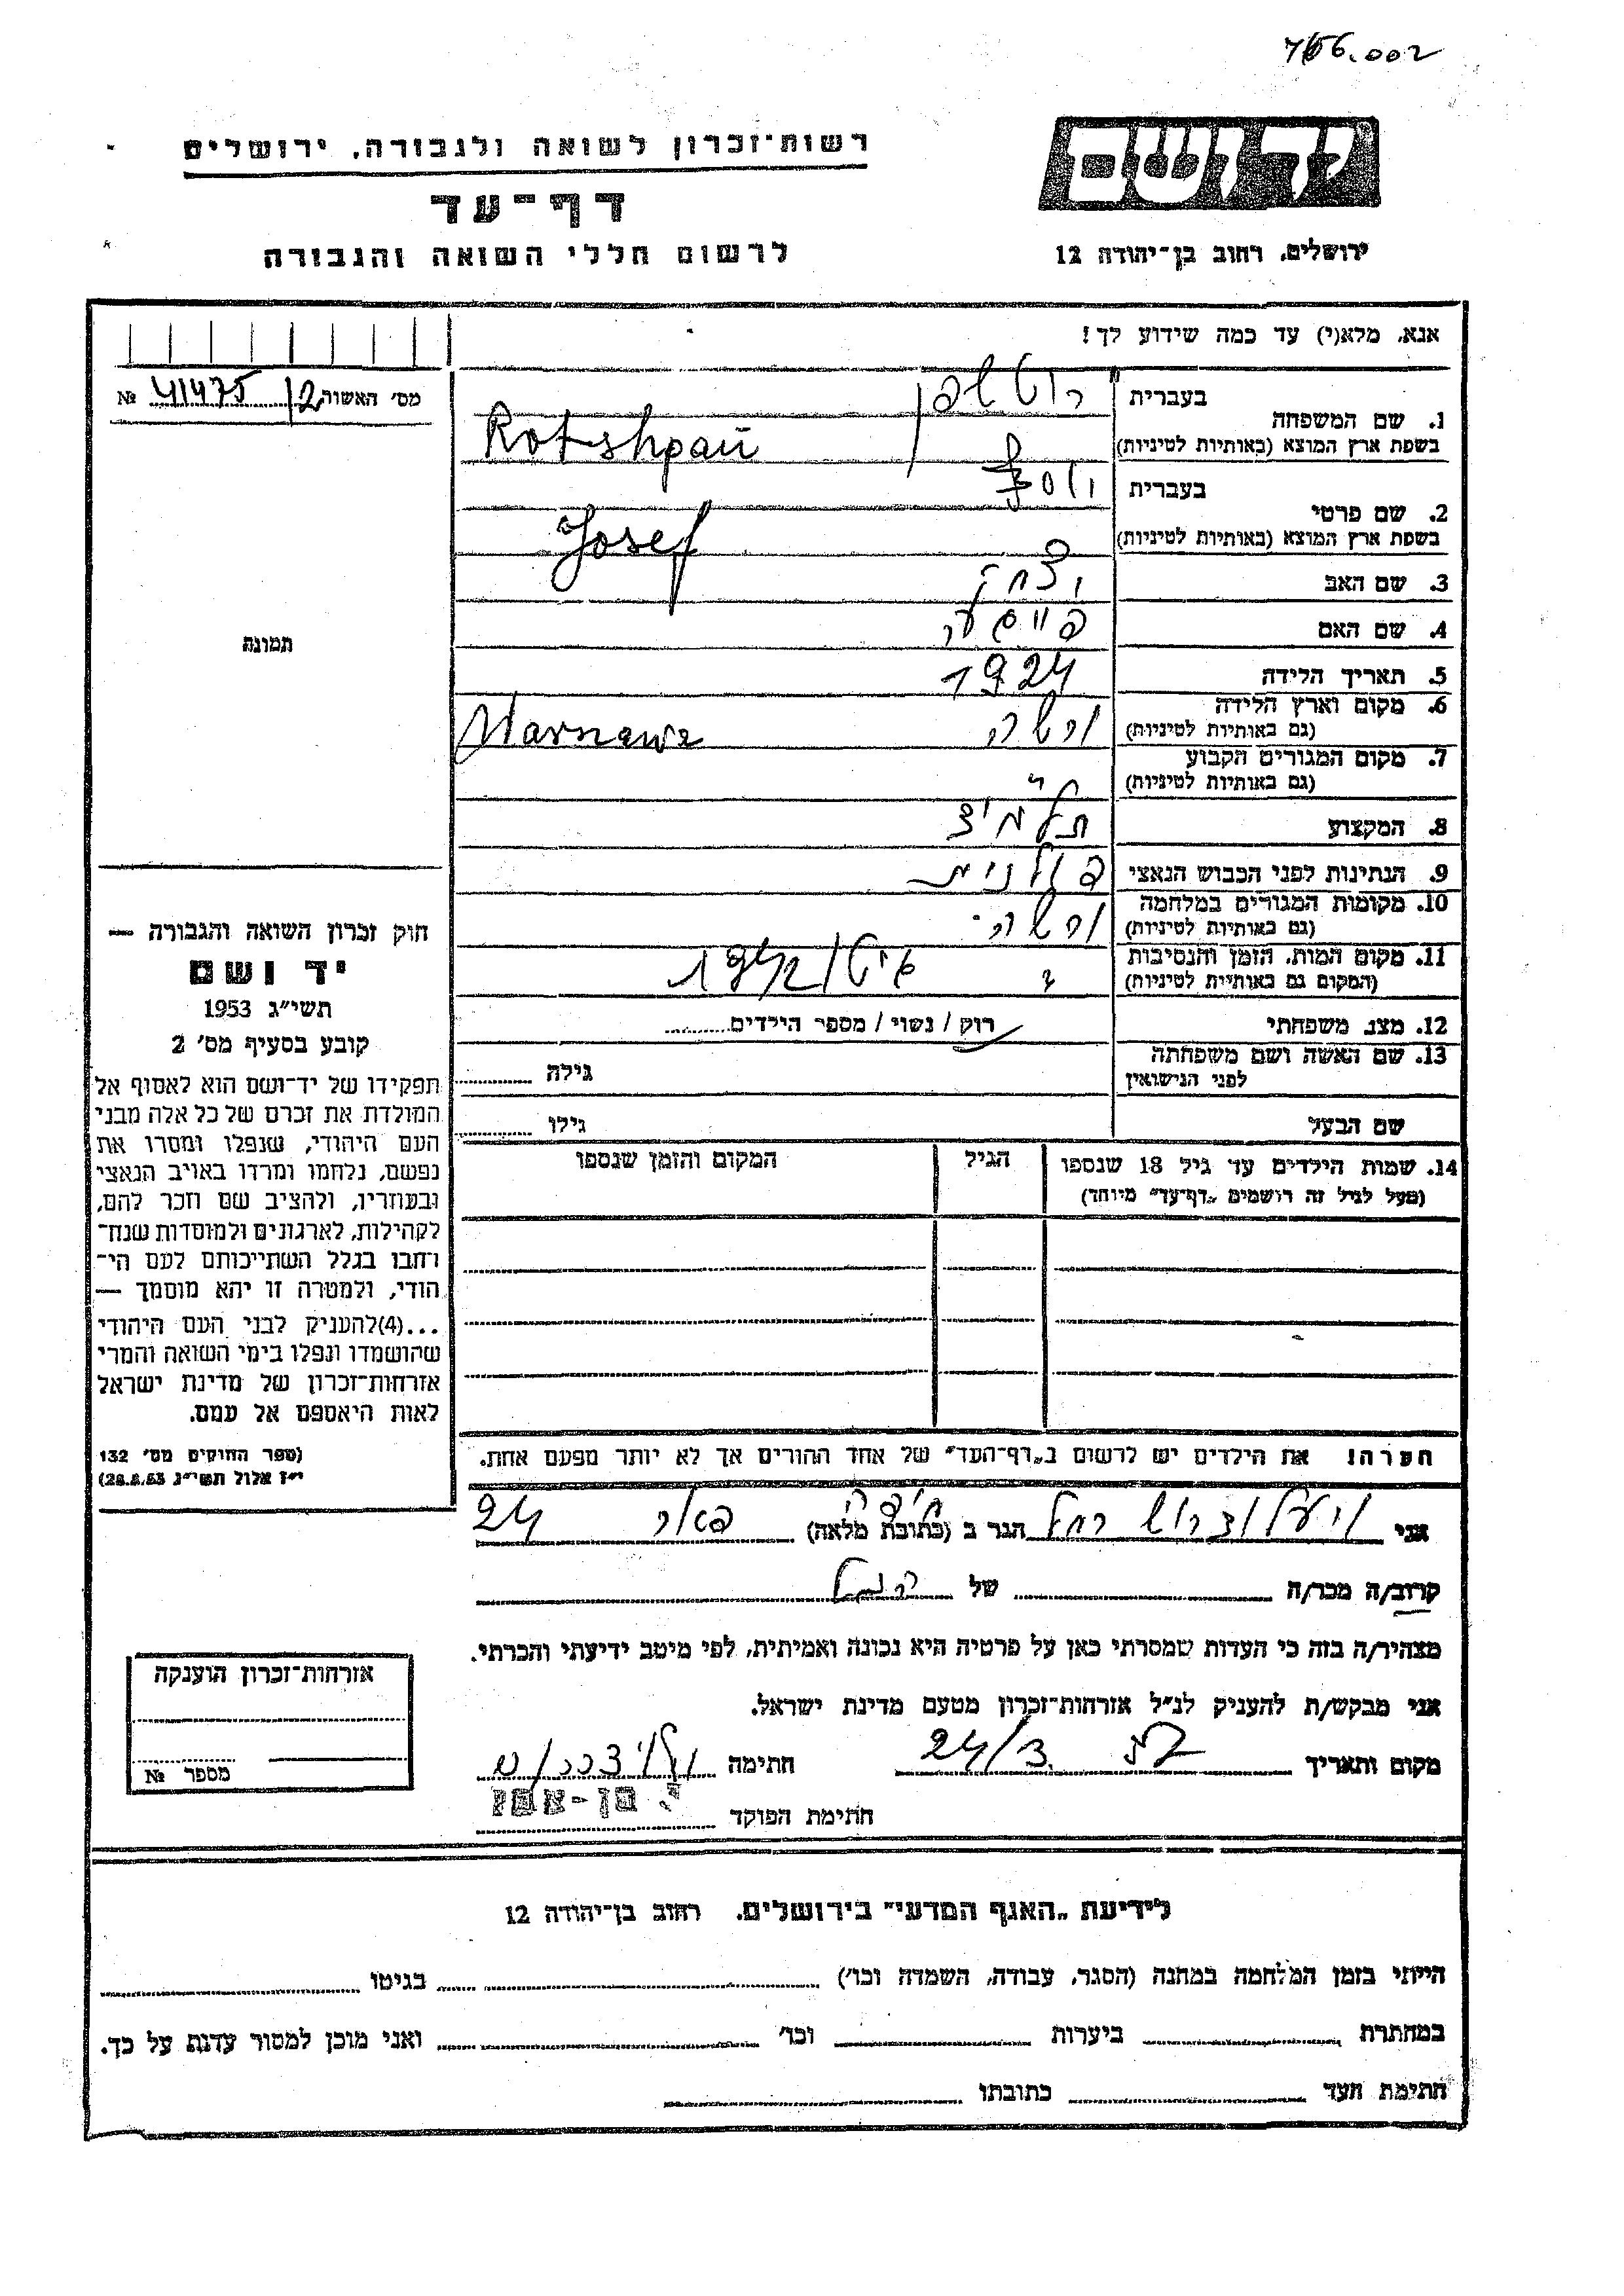 766.002
יד ושם
רשות־זכרון לשואה ולגבורה, ירושלים
דף־עד
לרשום חללי השואה והגבורה
ירושלים, רחוב בן־יהודה 12
אנא, מלא(י) עד כמה שידוע לך!
מס' האשור 12/ 41475 №
תמונה
1. שם המשפחה
בעברית
בשפת ארץ המוצא (באותיות לטיניות) Rotshpan
2. שם פרטי
בעברית יוסף
בשפת ארץ המוצא (באותיות לטיניות) Josef
3. שם האב יצחק
4. שם האם
5. תאריך הלידה 1924
6. מקום וארץ הלידה
(גם באותיות לטיניות) ורשה Warszawa
7. מקום המגורים הקבוע
(גם באותיות לטיניות) כנ"ל
8. המקצוע תלמיד
9. הנתינות לפני הכבוש הנאצי פולנית
10. מקומות המגורים במלחמה
(גם באותיות לטיניות) ורשה
11. מקום המות, הזמן והנסיבות
(המקום גם באותיות לטיניות) גיטו 1942
12. מצב משפחתי רוק / נשוי / מספר הילדים
13. שם האשה ושם משפחתה
לפני הנישואין גילה
שם הבעל גילו
14. שמות הילדים עד גיל 18 שנספו
(מעל לגיל זה רושמים „דף־עד" מיוחד)
הגיל
המקום והזמן שנספו
חוק זכרון השואה והגבורה —
יד ושם
תשי״ג 1953
קובע בסעיף מס' 2
תפקידו של יד־ושם הוא לאסוף אל
המולדת את זכרם של כל אלה מבני
העם היהודי, שנפלו ומסרו את
נפשם, נלחמו ומרדו באויב הנאצי
ובעוזריו, ולהציב שם וזכר להם,
לקהילות, לארגונים ולמוסדות שנח־
רחבו בגלל השתייכותם לעם הי־
הודי, ולמטרה זו יהא מוסמך —
...(4)להעניק לבני העם היהודי
שהושמדו ונפלו בימי השואה והמרי
אזרחות־זכרון של מדינת ישראל
לאות היאספם אל עמם.
(ספר החוקים מס' 132
י״ז אלול תשי״ג 28.8.53)
הערה! את הילדים יש לרשום ב„דף־העד" של אחד ההורים אך לא יותר מפעם אחת.
אני רחל הגר ב (כתובת מלאה) חיפה 24
קרוב/ה מכר/ה של
מצהיר/ה בזה כי העדות שמסרתי כאן על פרטיה היא נכונה ואמיתית, לפי מיטב ידיעתי והכרתי.
אני מבקש/ת להעניק לנ״ל אזרחות־זכרון מטעם מדינת ישראל.
מקום ותאריך 24/3 חתימה
חתימת הפוקד
אזרחות־זכרון הוענקה
מספר №
לידיעת „האגף המדעי" בירושלים, רחוב בן־יהודה 12
הייתי בזמן המלחמה במחנה (הסגר, עבודה, השמדה וכו') בגיטו
במחתרת ביערות וכו' ואני מוכן למסור עדות על כך.
חתימת העד כתובתו